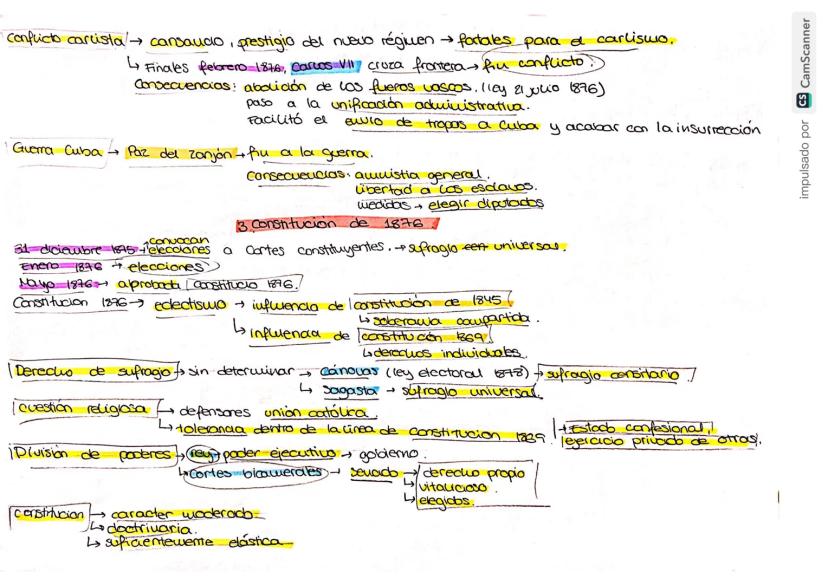 conflicto carlista → cansancio, prestigio del nuevo régimen → fatales para el carlismo.
↳ Finales febrero 1876, Carlos VII cruza frontera → fin conflicto.
Consecuencias: abolición de los fueros vascos. (ley 21 julio 1876)
paso a la unificación administrativa.
Facilitó el envío de tropas a Cuba y acabar con la insurrección
Guerra Cuba → Paz del zanjón → fin a la guerra.
consecuencias: amnistia general.
libertad a los esclavos.
medidas → elegir diputados
3. Constitución de 1876.
31 diciembre 1875 → convocan elecciones a Cortes constituyentes. → sufragio universal.
Enero 1876 → elecciones
Mayo 1876 → aprobada constitucio 1876.
Constitucion 1876 → eclectismo → influencia de constitución de 1845
↳ soberania compartida.
↳ influencia de constitución 1869
↳ derechos individuales.
Derecho de sufragio → sin determinar → cánovas (ley electoral 1878) → sufragio censitario.
↳ Sagasta → sufragio universal.
cuestión religiosa → defensores unión católica.
↳ tolerancia dentro de la linea de constitucion 1829. → Estado confesional, ejercicio privado de otras.
División de poderes → rey → poder ejecutivo → gobierno.
↳ cortes bicamerales → senado → derecho propio
↳ vitalicioso
↳ elegidos.
constitucion → caracter moderado
↳ doctrinaria.
↳ suficientemente elástica
impulsado por CS CamScanner